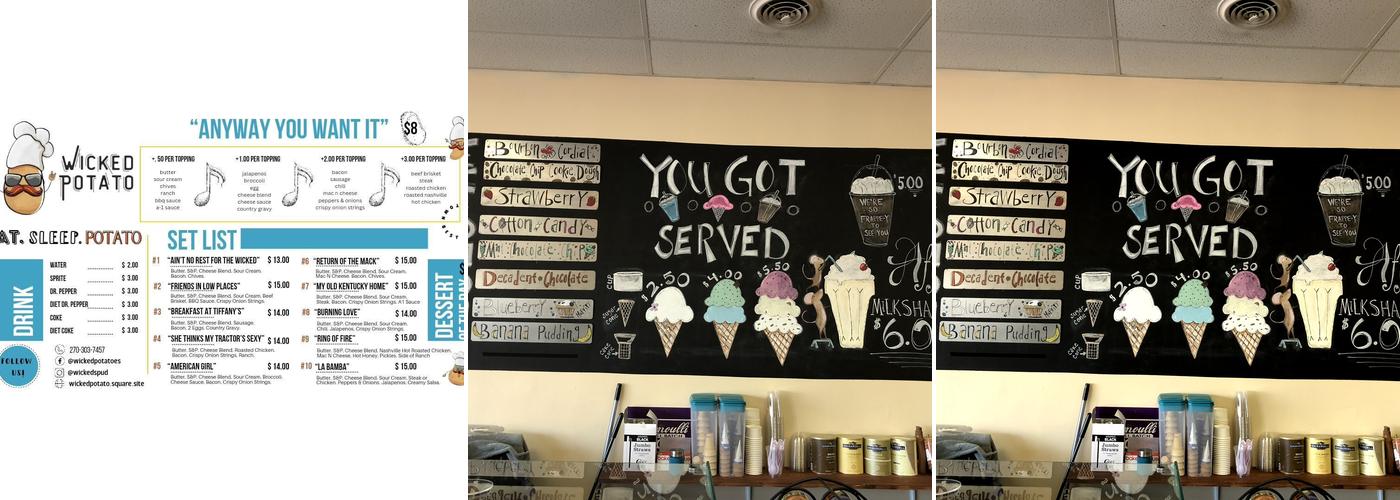 "ANYWAY YOU WANT IT"
$8
WICKED
POTATO
+. 50 PER TOPPING
butter
sour cream
chives
ranch
bbq sauce
a-1 sauce
+1.00 PER TOPPING
jalapenos
broccoli
egg
cheese blend
cheese sauce
country gravy
+2.00 PER TOPPING
bacon
sausage
chili
mac n cheese
peppers & onions
crispy onion strings
+3.00 PER TOPPING
beef brisket
steak
roasted chicken
roasted nashville
hot chicken
AT. SLEEP. POTATO
SET LIST
DRINK
WATER $ 2.00
SPRITE $ 3.00
DR. PEPPER $ 3.00
DIET DR. PEPPER $ 3.00
COKE $ 3.00
DIET COKE $ 3.00
FOLLOW
US!
270-303-7457
@wickedpotatoes
@wickedspud
wickedpotato.square.site
#1 "AIN'T NO REST FOR THE WICKED" $ 13.00
Butter, S&P, Cheese Blend, Sour Cream,
Bacon, Chives.
#2 "FRIENDS IN LOW PLACES" $ 15.00
Butter, S&P, Cheese Blend, Sour Cream, Beef
Brisket, BBQ Sauce, Crispy Onion Strings.
#3 "BREAKFAST AT TIFFANY'S" $ 14.00
Butter, S&P, Cheese Blend, Sausage,
Bacon, 2 Eggs, Country Gravy.
#4 "SHE THINKS MY TRACTOR'S SEXY" $ 14.00
Butter, S&P, Cheese Blend, Roasted Chicken,
Bacon, Crispy Onion Strings, Ranch.
#5 "AMERICAN GIRL" $ 14.00
Butter, S&P, Cheese Blend, Sour Cream, Broccoli,
Cheese Sauce, Bacon, Crispy Onion Strings.
#6 "RETURN OF THE MACK" $ 15.00
Butter, S&P, Cheese Blend, Sour Cream,
Mac N Cheese, Bacon, Chives.
#7 "MY OLD KENTUCKY HOME" $ 15.00
Butter, S&P, Cheese Blend, Sour Cream,
Steak, Bacon, Crispy Onion Strings, A1 Sauce
#8 "BURNING LOVE" $ 15.00
Butter, S&P, Cheese Blend, Sour Cream,
Chili, Jalapenos, Crispy Onion Strings.
#9 "RING OF FIRE" $ 15.00
Butter, S&P, Cheese Blend, Nashville Hot Roasted Chicken,
Mac N Cheese, Hot Honey, Pickles, Side of Ranch
#10 "LA BAMBA" $ 15.00
Butter, S&P, Cheese Blend, Sour Cream, Steak or
Chicken, Peppers & Onions, Jalapenos, Creamy Salsa.
DESSERT
Bourbon Cordial
Chocolate Chip Cookie Dough
Strawberry
Cotton Candy
Mint Chocolate Chip
Decadent Chocolate
Blueberry
Banana Pudding
YOU GOT
SERVED
$2.50
$4.00
$5.50
CUP
CAKE CONE
WE'RE
SO
FRAPPE-Y
TO SEE YOU
$5.00
MILKSHA
$6.0
Jumbo
Straws
Bourbon Cordial
Chocolate Chip Cookie Dough
Strawberry
Cotton Candy
Mint Chocolate Chip
Decadent Chocolate
Blueberry
Banana Pudding
YOU GOT
SERVED
$2.50
$4.00
$5.50
CUP
CAKE CONE
WE'RE
SO
FRAPPE-Y
TO SEE YOU
$5.00
MILKSHA
$6.0
Jumbo
Straws